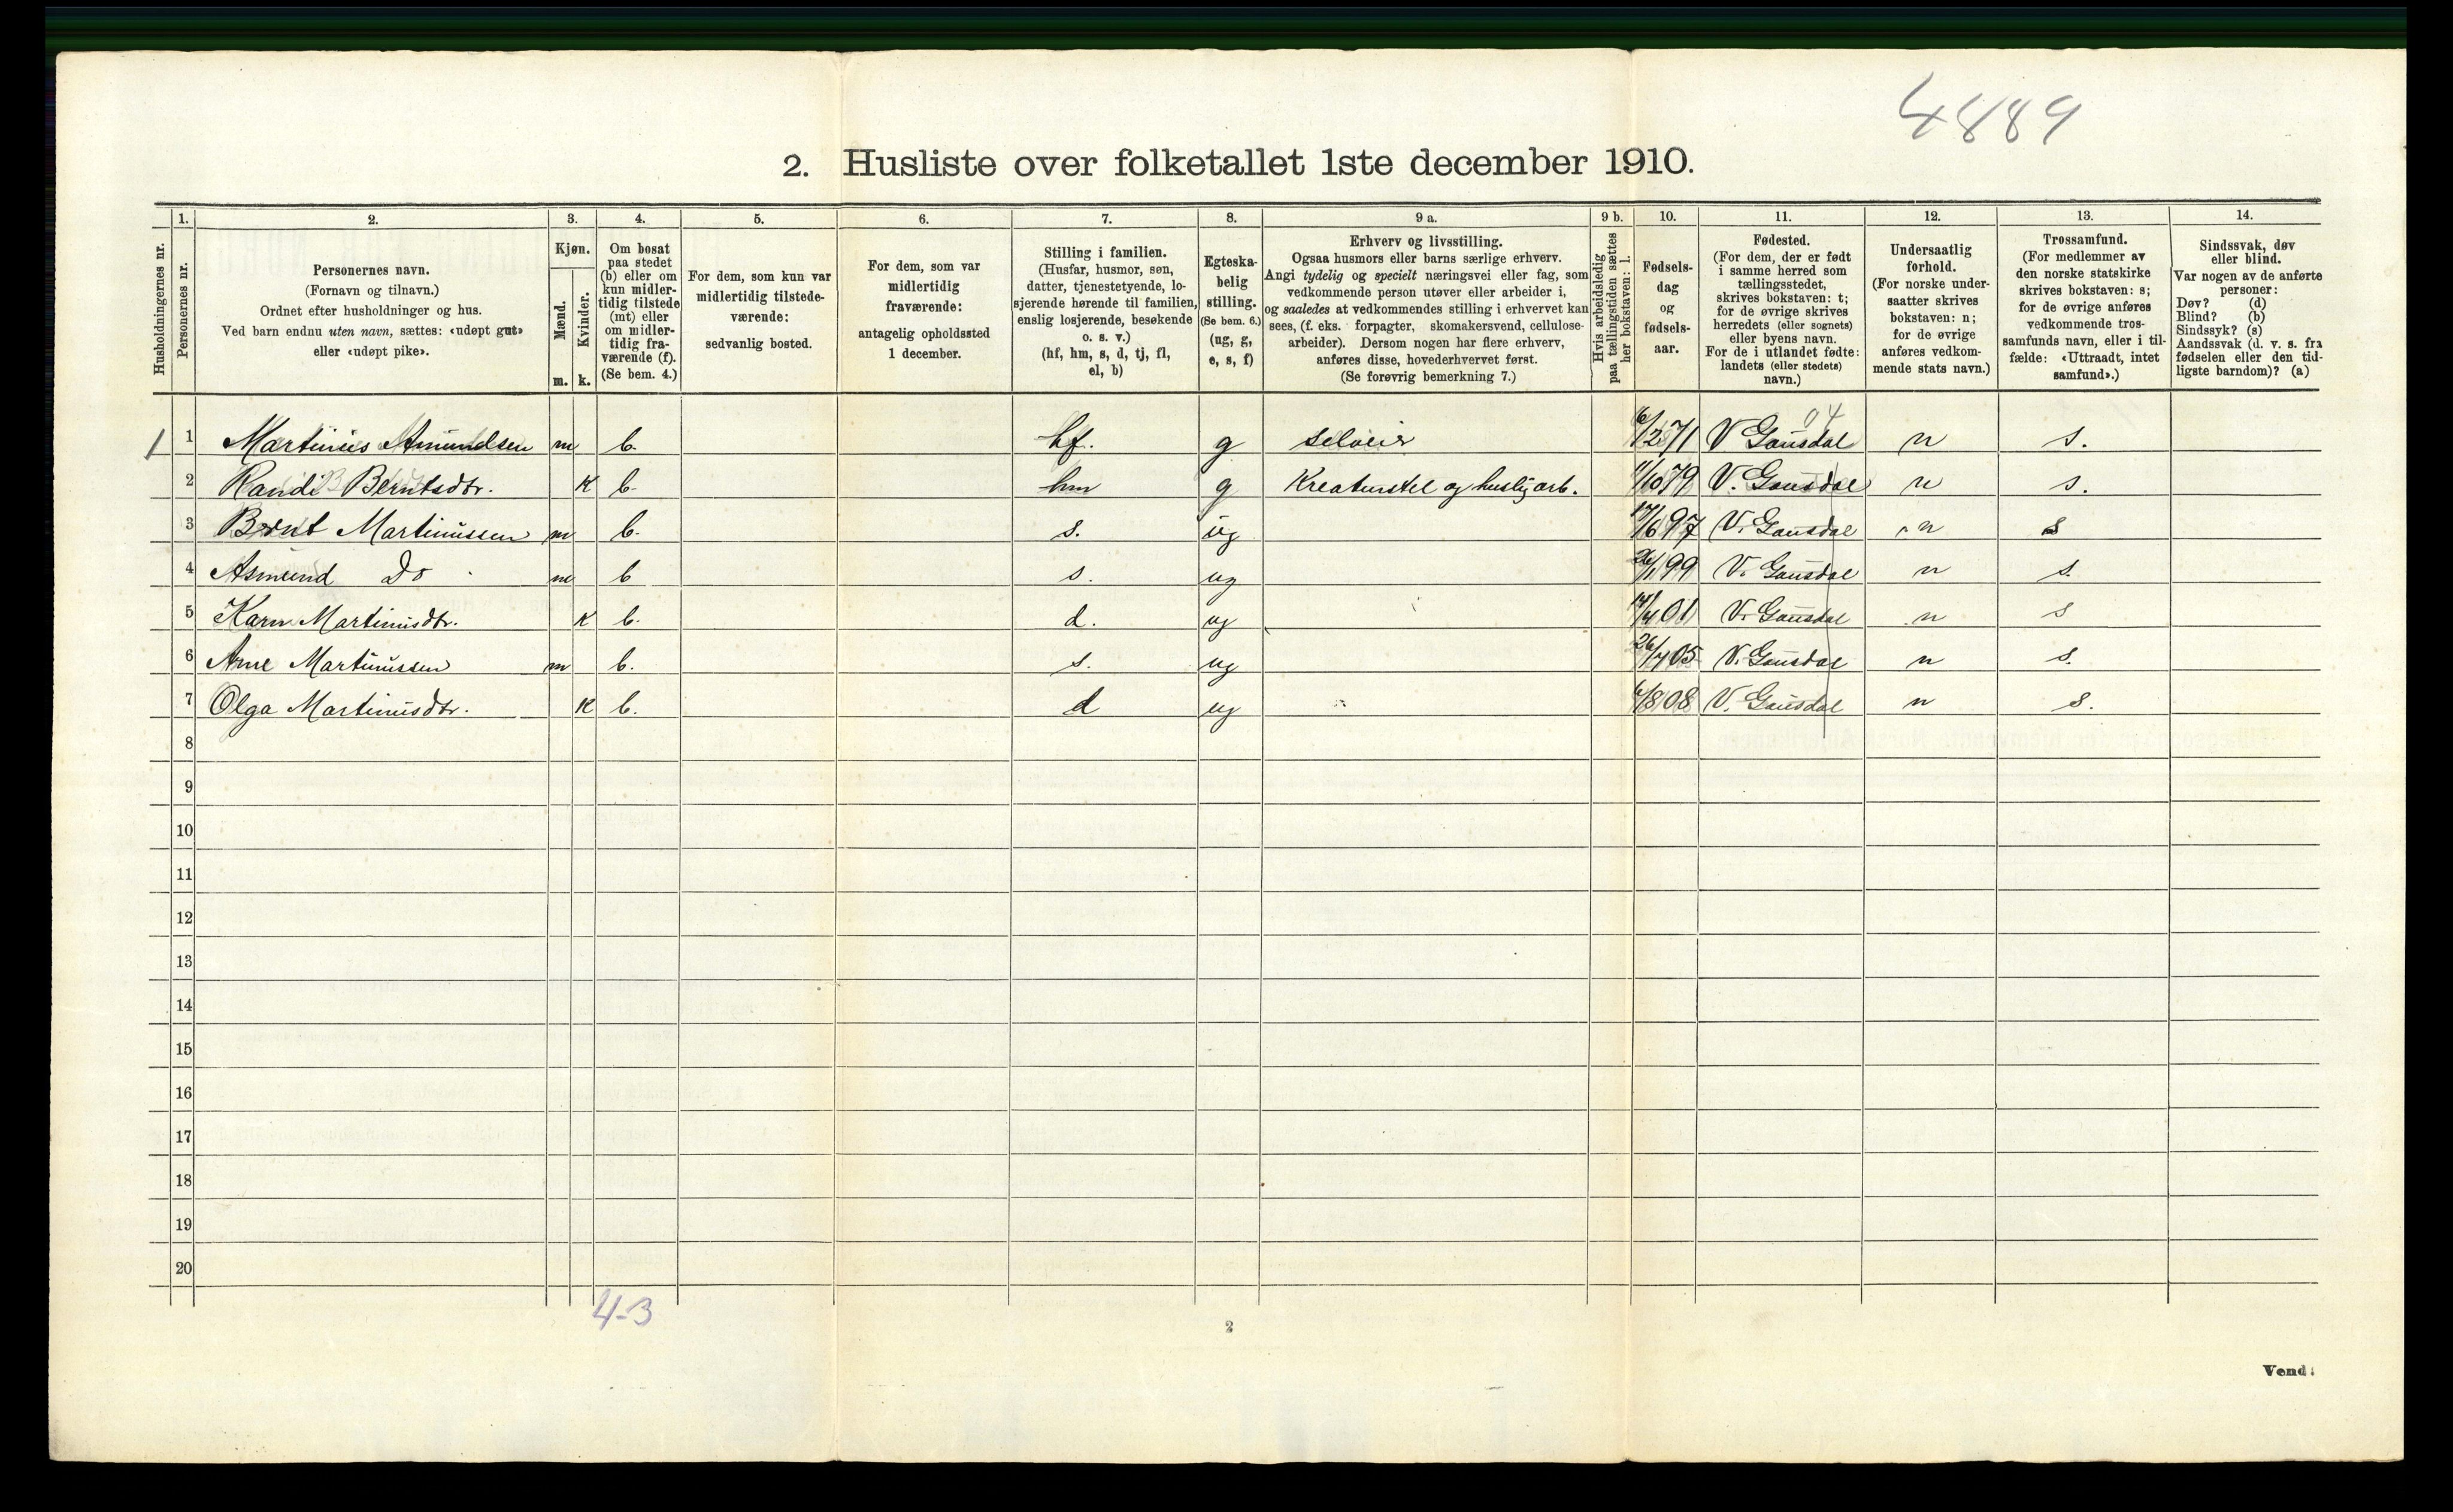 4889
2. Husliste over folketallet 1ste december 1910.
1. 2. 3. 4. 5. 6. 7. 8. 9 a. 9 b. 10. 11. 12. 13. 14.
Husholdningernes nr.
Personernes nr.
Personernes navn.
(Fornavn og tilnavn.)
Ordnet efter husholdninger og hus.
Ved barn endnu uten navn, sættes: «udøpt gut»
eller «udøpt pike».
Kjøn.
Mænd.
Kvinder.
m. k.
Om bosat
paa stedet
(b) eller om
kun midler-
tidig tilstede
(mt) eller
om midler-
tidig fra-
værende (f).
(Se bem. 4.)
For dem, som kun var
midlertidig tilstede-
værende:
sedvanlig bosted.
For dem, som var
midlertidig
fraværende:
antagelig opholdssted
1 december.
Stilling i familien.
(Husfar, husmor, søn,
datter, tjenestetyende, lo-
sjerende hørende til familien,
enslig losjerende, besøkende
o. s. v.)
(hf, hm, s, d, tj, fl,
el, b)
Egteska-
belig
stilling.
(Se bem. 6.)
(ug, g,
e, s, f)
Erhverv og livsstilling.
Ogsaa husmors eller barns særlige erhverv.
Angi tydelig og specielt næringsvei eller fag, som
vedkommende person utøver eller arbeider i,
og saaledes at vedkommendes stilling i erhvervet kan
sees, (f. eks. forpagter, skomakersvend, cellulose-
arbeider). Dersom nogen har flere erhverv,
anføres disse, hovederhvervet først.
(Se forøvrig bemerkning 7.)
Hvis arbeidsledig
paa tællingstiden sættes
her bokstaven: l.
Fødsels-
dag
og
fødsels-
aar.
Fødested.
(For dem, der er født
i samme herred som
tællingsstedet,
skrives bokstaven: t;
for de øvrige skrives
herredets (eller sognets)
eller byens navn.
For de i utlandet fødte:
landets (eller stedets)
navn.)
Undersaatlig
forhold.
(For norske under-
saatter skrives
bokstaven: n;
for de øvrige
anføres vedkom-
mende stats navn.)
Trossamfund.
(For medlemmer av
den norske statskirke
skrives bokstaven: s;
for de øvrige anføres
vedkommende tros-
samfunds navn, eller i til-
fælde: «Uttraadt, intet
samfund».)
Sindssvak, døv
eller blind.
Var nogen av de anførte
personer:
Døv? (d)
Blind? (b)
Sindssyk? (s)
Aandssvak (d. v. s. fra
fødselen eller den tid-
ligste barndom)? (a)
04
1 1 Martinius Amundsen m b. hf. g selveier 6/2 71 V Gausdal n s.
2 Randi Berntsdtr. K b. hm g Kreaturstel og huslig arb. 11/10 79 V. Gausdal n s.
3 Bernt Martinussen m b. s. ug 17/6 97 V. Gausdal n s
4 Asmund Do m b s. ug 26/1 99 V. Gausdal n s.
5 Karn Martinusdtr. K b. d. ug 14/4 01 V. Gausdal n s
6 Arne Martinussen m b. s. ug 26/4 05 V. Gausdal n s.
7 Olga Martinusdtr. K b. d ug 6/8 08 V. Gausdal n s.
8
9
10
11
12
13
14
15
16
17
18
19
20
4-3
2
Vend!